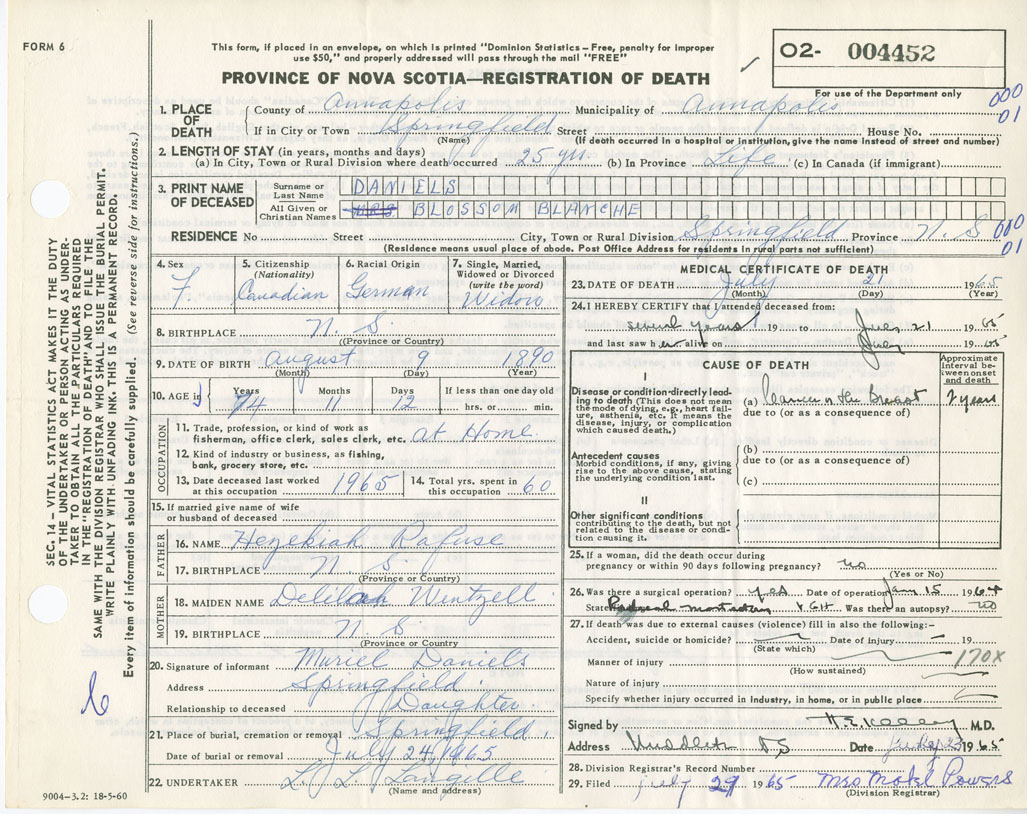 FORM 6
This form, if placed in an envelope, on which is printed "Dominion Statistics – Free, penalty for improper
use $50," and properly addressed will pass through the mail "FREE"
PROVINCE OF NOVA SCOTIA—REGISTRATION OF DEATH
O2- 004452
For use of the Department only
000
01
1. PLACE OF DEATH
County of Annapolis Municipality of Annapolis
If in City or Town Springfield Street House No.
(Name) (If death occurred in a hospital or institution, give the name instead of street and number)
2. LENGTH OF STAY (in years, months and days)
(a) In City, Town or Rural Division where death occurred 25 yrs. (b) In Province Life (c) In Canada (if immigrant)
3. PRINT NAME OF DECEASED
Surname or Last Name DANIELS
All Given or Christian Names MRS BLOSSOM BLANCHE
RESIDENCE No Street City, Town or Rural Division Springfield Province N. S
(Residence means usual place of abode. Post Office Address for residents in rural parts not sufficient)
000
01
4. Sex F.
5. Citizenship (Nationality) Canadian
6. Racial Origin German
7. Single, Married, Widowed or Divorced (write the word) Widow
8. BIRTHPLACE N. S.
(Province or Country)
9. DATE OF BIRTH August 9 1890
(Month) (Day) (Year)
10. AGE in Years 74 Months 11 Days 12 If less than one day old hrs. or min.
OCCUPATION
11. Trade, profession, or kind of work as
fisherman, office clerk, sales clerk, etc. at Home
12. Kind of industry or business, as fishing,
bank, grocery store, etc.
13. Date deceased last worked at this occupation 1965
14. Total yrs. spent in this occupation 60
15. If married give name of wife
or husband of deceased
FATHER
16. NAME Hezekiah Rafuse
17. BIRTHPLACE N. S.
(Province or Country)
MOTHER
18. MAIDEN NAME Delilah Wentzell
19. BIRTHPLACE N. S.
(Province or Country)
20. Signature of informant Muriel Daniels
Address Springfield.
Relationship to deceased Daughter.
21. Place of burial, cremation or removal Springfield,
Date of burial or removal July 24, 1965
22. UNDERTAKER L. L. Langille
(Name and address)
MEDICAL CERTIFICATE OF DEATH
23. DATE OF DEATH July 21 1965
(Month) (Day) (Year)
24. I HEREBY CERTIFY that I attended deceased from:
several years 19 to July 21 1965
and last saw her alive on July 1965
CAUSE OF DEATH
Approximate interval between onset and death
I
Disease or condition directly leading to death (This does not mean the mode of dying, e.g., heart failure, asthenia, etc. It means the disease, injury, or complication which caused death.)
(a) Cancer of the Breast 2 years
due to (or as a consequence of)
Antecedent causes
Morbid conditions, if any, giving rise to the above cause, stating the underlying condition last.
(b)
due to (or as a consequence of)
(c)
II
Other significant conditions
contributing to the death, but not related to the disease or condition causing it.
25. If a woman, did the death occur during
pregnancy or within 90 days following pregnancy? no
(Yes or No)
26. Was there a surgical operation? yes Date of operation Jan 15 1964
State Radical mastectomy Was there an autopsy? no
27. If death was due to external causes (violence) fill in also the following:–
Accident, suicide or homicide? Date of injury 19
(State which)
Manner of injury 170X
(How sustained)
Nature of injury
Specify whether injury occurred in industry, in home, or in public place
Signed by M.D.
Address Date July 23 1965
28. Division Registrar's Record Number
29. Filed July 29 1965 Mrs Powers
(Division Registrar)
SEC. 14 – VITAL STATISTICS ACT MAKES IT THE DUTY
OF THE UNDERTAKER OR PERSON ACTING AS UNDER-
TAKER TO OBTAIN ALL THE PARTICULARS REQUIRED
IN THE "REGISTRATION OF DEATH" AND TO FILE THE
SAME WITH THE DIVISION REGISTRAR WHO SHALL ISSUE THE BURIAL PERMIT.
WRITE PLAINLY WITH UNFADING INK. THIS IS A PERMANENT RECORD.
Every item of information should be carefully supplied. (See reverse side for instructions.)
9004-3.2: 18-5-60